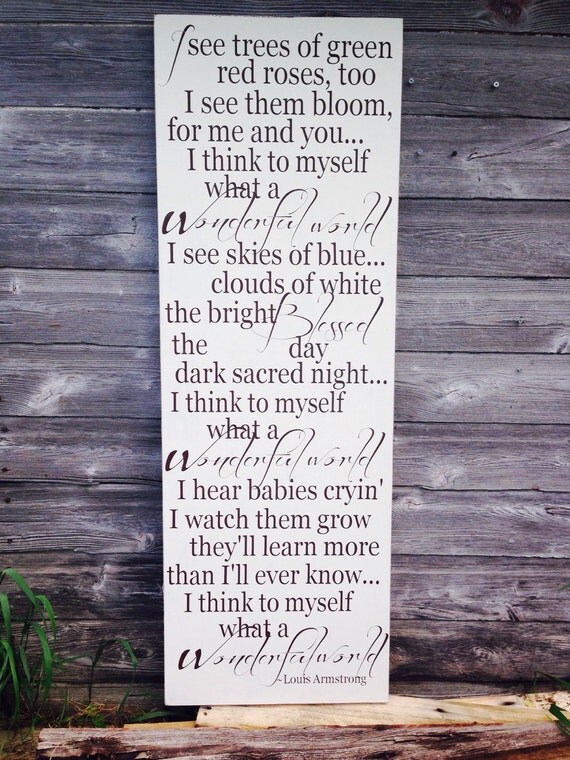 I see trees of green
red roses, too
I see them bloom,
for me and you...
I think to myself
what a
wonderful world
I see skies of blue...
clouds of white
the bright Blessed
the day
dark sacred night...
I think to myself
what a
wonderful world
I hear babies cryin'
I watch them grow
they'll learn more
than I'll ever know...
I think to myself
what a
wonderful world
~Louis Armstrong